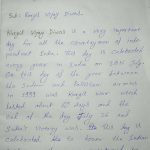 Sub:- Kargil Vijay Diwas.
Kargil Vijay Diwas is a very important
day for all the countrymen of inde-
pendent India. This day is celebrated
every year in India on 26th July.
On this day of the year between
the Indian and Pakistan armies
in 1999 was Kargil War which
lasted about 60 days and the
end of the day July 26 and
India's victory was. the this day is
celebrated like to honor the Indian